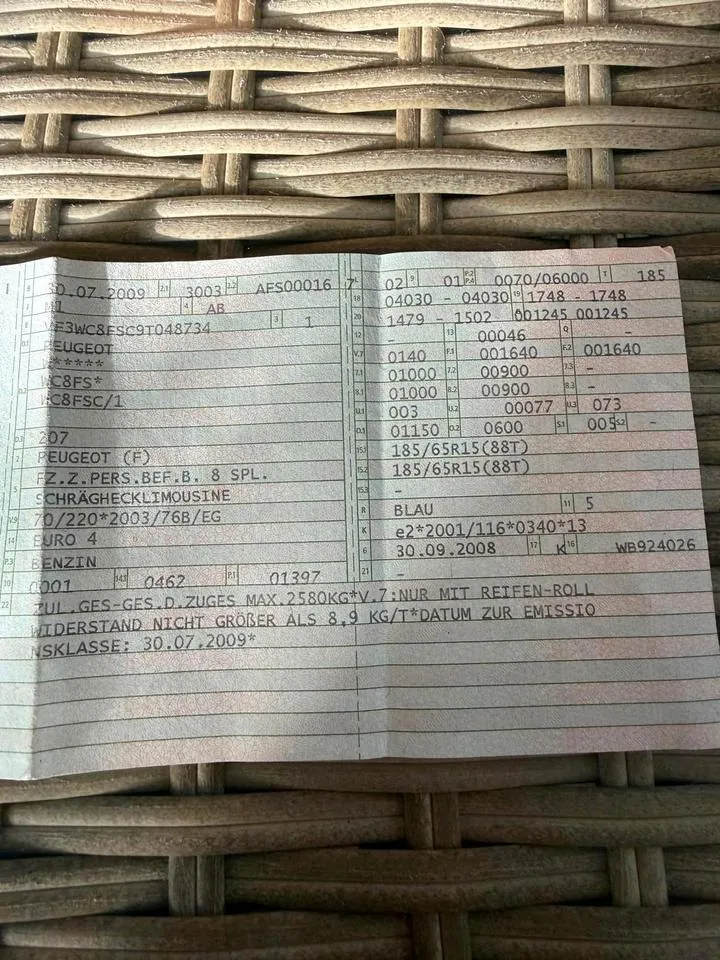 30.07.2009 2.1 3003 2.2 AFS00016 7
M1 4 AB
VF3WC8FSC9T048734 3 1
PEUGEOT
******
WC8FS*
WC8FSC/1
D.3 207
2 PEUGEOT (F)
5 FZ.Z.PERS.BEF.B. 8 SPL.
SCHRÄGHECKLIMOUSINE
V.9 70/220*2003/76B/EG
14 EURO 4
P.3 BENZIN
10 0001 14.1 0462 P.1 01397
L 02 9 01 P.2 P.4 0070/06000 T 185
18 04030 - 04030 19 1748 - 1748
20 1479 - 1502 001245 001245
12 - 13 00046 Q -
V.7 0140 F.1 001640 F.2 001640
7.1 01000 7.2 00900 7.3 -
8.1 01000 8.2 00900 8.3 -
U.1 003 U.2 00077 U.3 073
O.1 01150 O.2 0600 S.1 005 S.2 -
15.1 185/65R15(88T)
15.2 185/65R15(88T)
15.3 -
R BLAU 11 5
K e2*2001/116*0340*13
6 30.09.2008 17 K 16 WB924026
21 -
22 ZUL.GES-GES.D.ZUGES MAX.2580KG*V.7:NUR MIT REIFEN-ROLL
WIDERSTAND NICHT GRÖßER ALS 8,9 KG/T*DATUM ZUR EMISSIO
NSKLASSE: 30.07.2009*